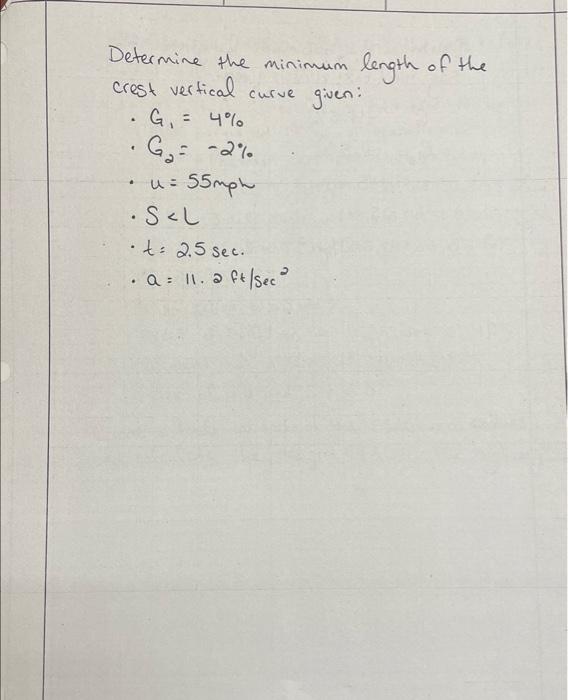 Determine the minimum length of the
crest vertical curve given:
• G₁ = 4%
• G₂ = -2%
• u = 55mph
• S < L
• t = 2.5 sec.
• a = 11.2 ft/sec²